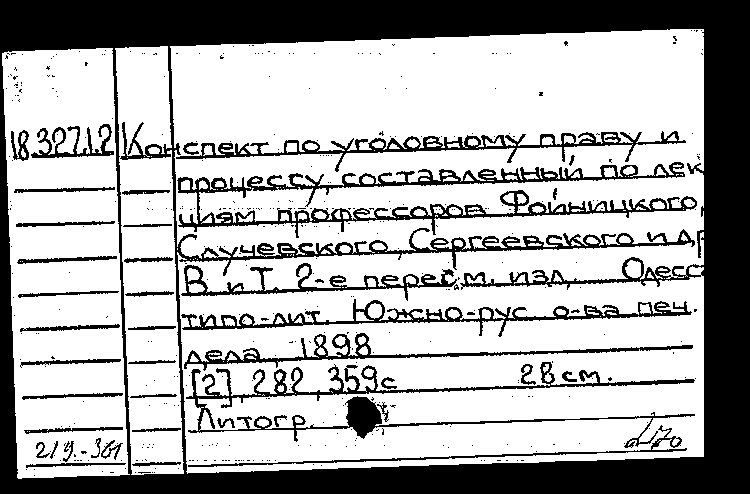 18.327.1.2 Конспект по уголовному праву и
процессу, составленный по лек
циям профессоров Фойницкого,
Случевского, Сергеевского и др
В и Т. 2-е пересм. изд. Одесса
типо-лит. Южно-рус о-ва печ.
дела, 1898
[2], 282, 359с 28 см.
Литогр.
219.-361